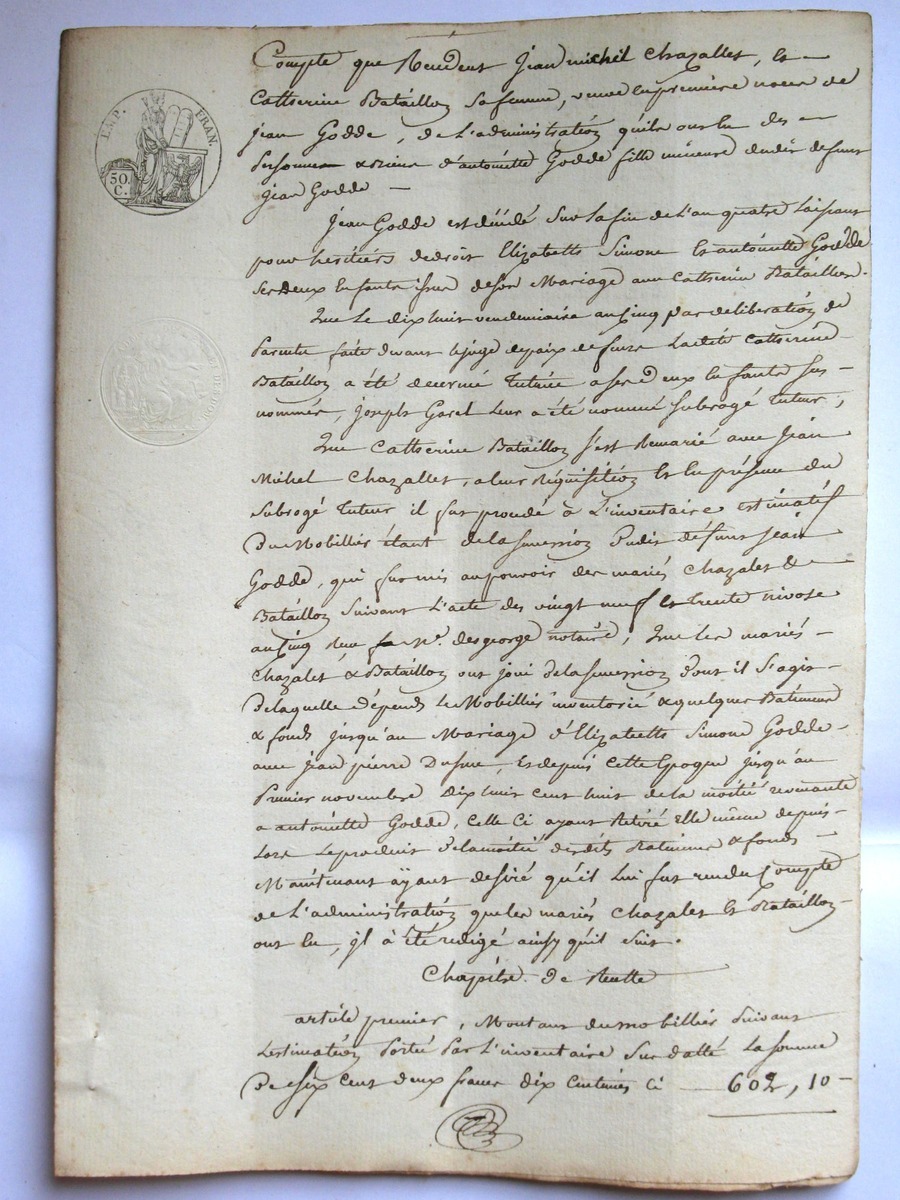 EMP. FRAN.
50.
C.
Compte que Rendent Jean michel Chazalles, et
Catherine Bataillon sa femme, veuve en première noces de
jean Godde, de L'administration qu'ils ont eu des
personne & biens d'antoinette Godde fille mineure dudit defunt
jean Godde
Jean Godde est décédé sur la fin de l'an quatre Laissant
pour héritiers de droit Elizabeth Simone et antoinette Godde
ses deux enfants issus de son Mariage avec Catherine Bataillon.
Que Le dix huit vendemiaire an Cinq par deliberation de
parents faite devant le juge de paix de Laditte Catherine
Bataillon a été decerné tutrice a ses deux enfants sus
nommés, joseph Garel Leur a été nommé Subrogé tuteur;
Que Catherine Bataillon s'est Remarié avec Jean
Michel Chazalles, a leur Réquisition et en présence du
Subrogé tuteur il fut procédé à L'inventaire estimatif
Du Mobilliés étant de la succession Dudit défunt Jean
Godde, qui fut mis au pouvoir des mariés Chazales &
Bataillon suivant L'acte des vingt neuf et trente nivose
an Cinq Reçu Me. desgeorge notaire, Que les mariés
Chazales & Bataillon ont joui de la succession dont il s'agit
De laquelle dépend Le Mobilliés inventorié & quelques Batiments
& fonds jusqu'au Mariage d'Elizabeth Simone Godde
avec jean pierre, Et depuis Cette Epoque jusqu'au
premier novembre Dix huit cent huit de la moitié revenante
a antoinette Godde, Celle Ci ayant Retiré Elle même depuis
Lors Le produit de la moitié desdits Batiments & fonds
Maintenant aÿant desiré qu'il Lui fut rendu Compte
de L'administration que les mariés Chazales et Bataillon
ont eu, jl à été redigé ainsy qu'il suit.
Chapitre de Recette
article premier, Montant du mobilliés Suivant
L'estimation portée par L'inventaire sus datté La somme
De six cent deux francs dix Centimes Ci 602,10